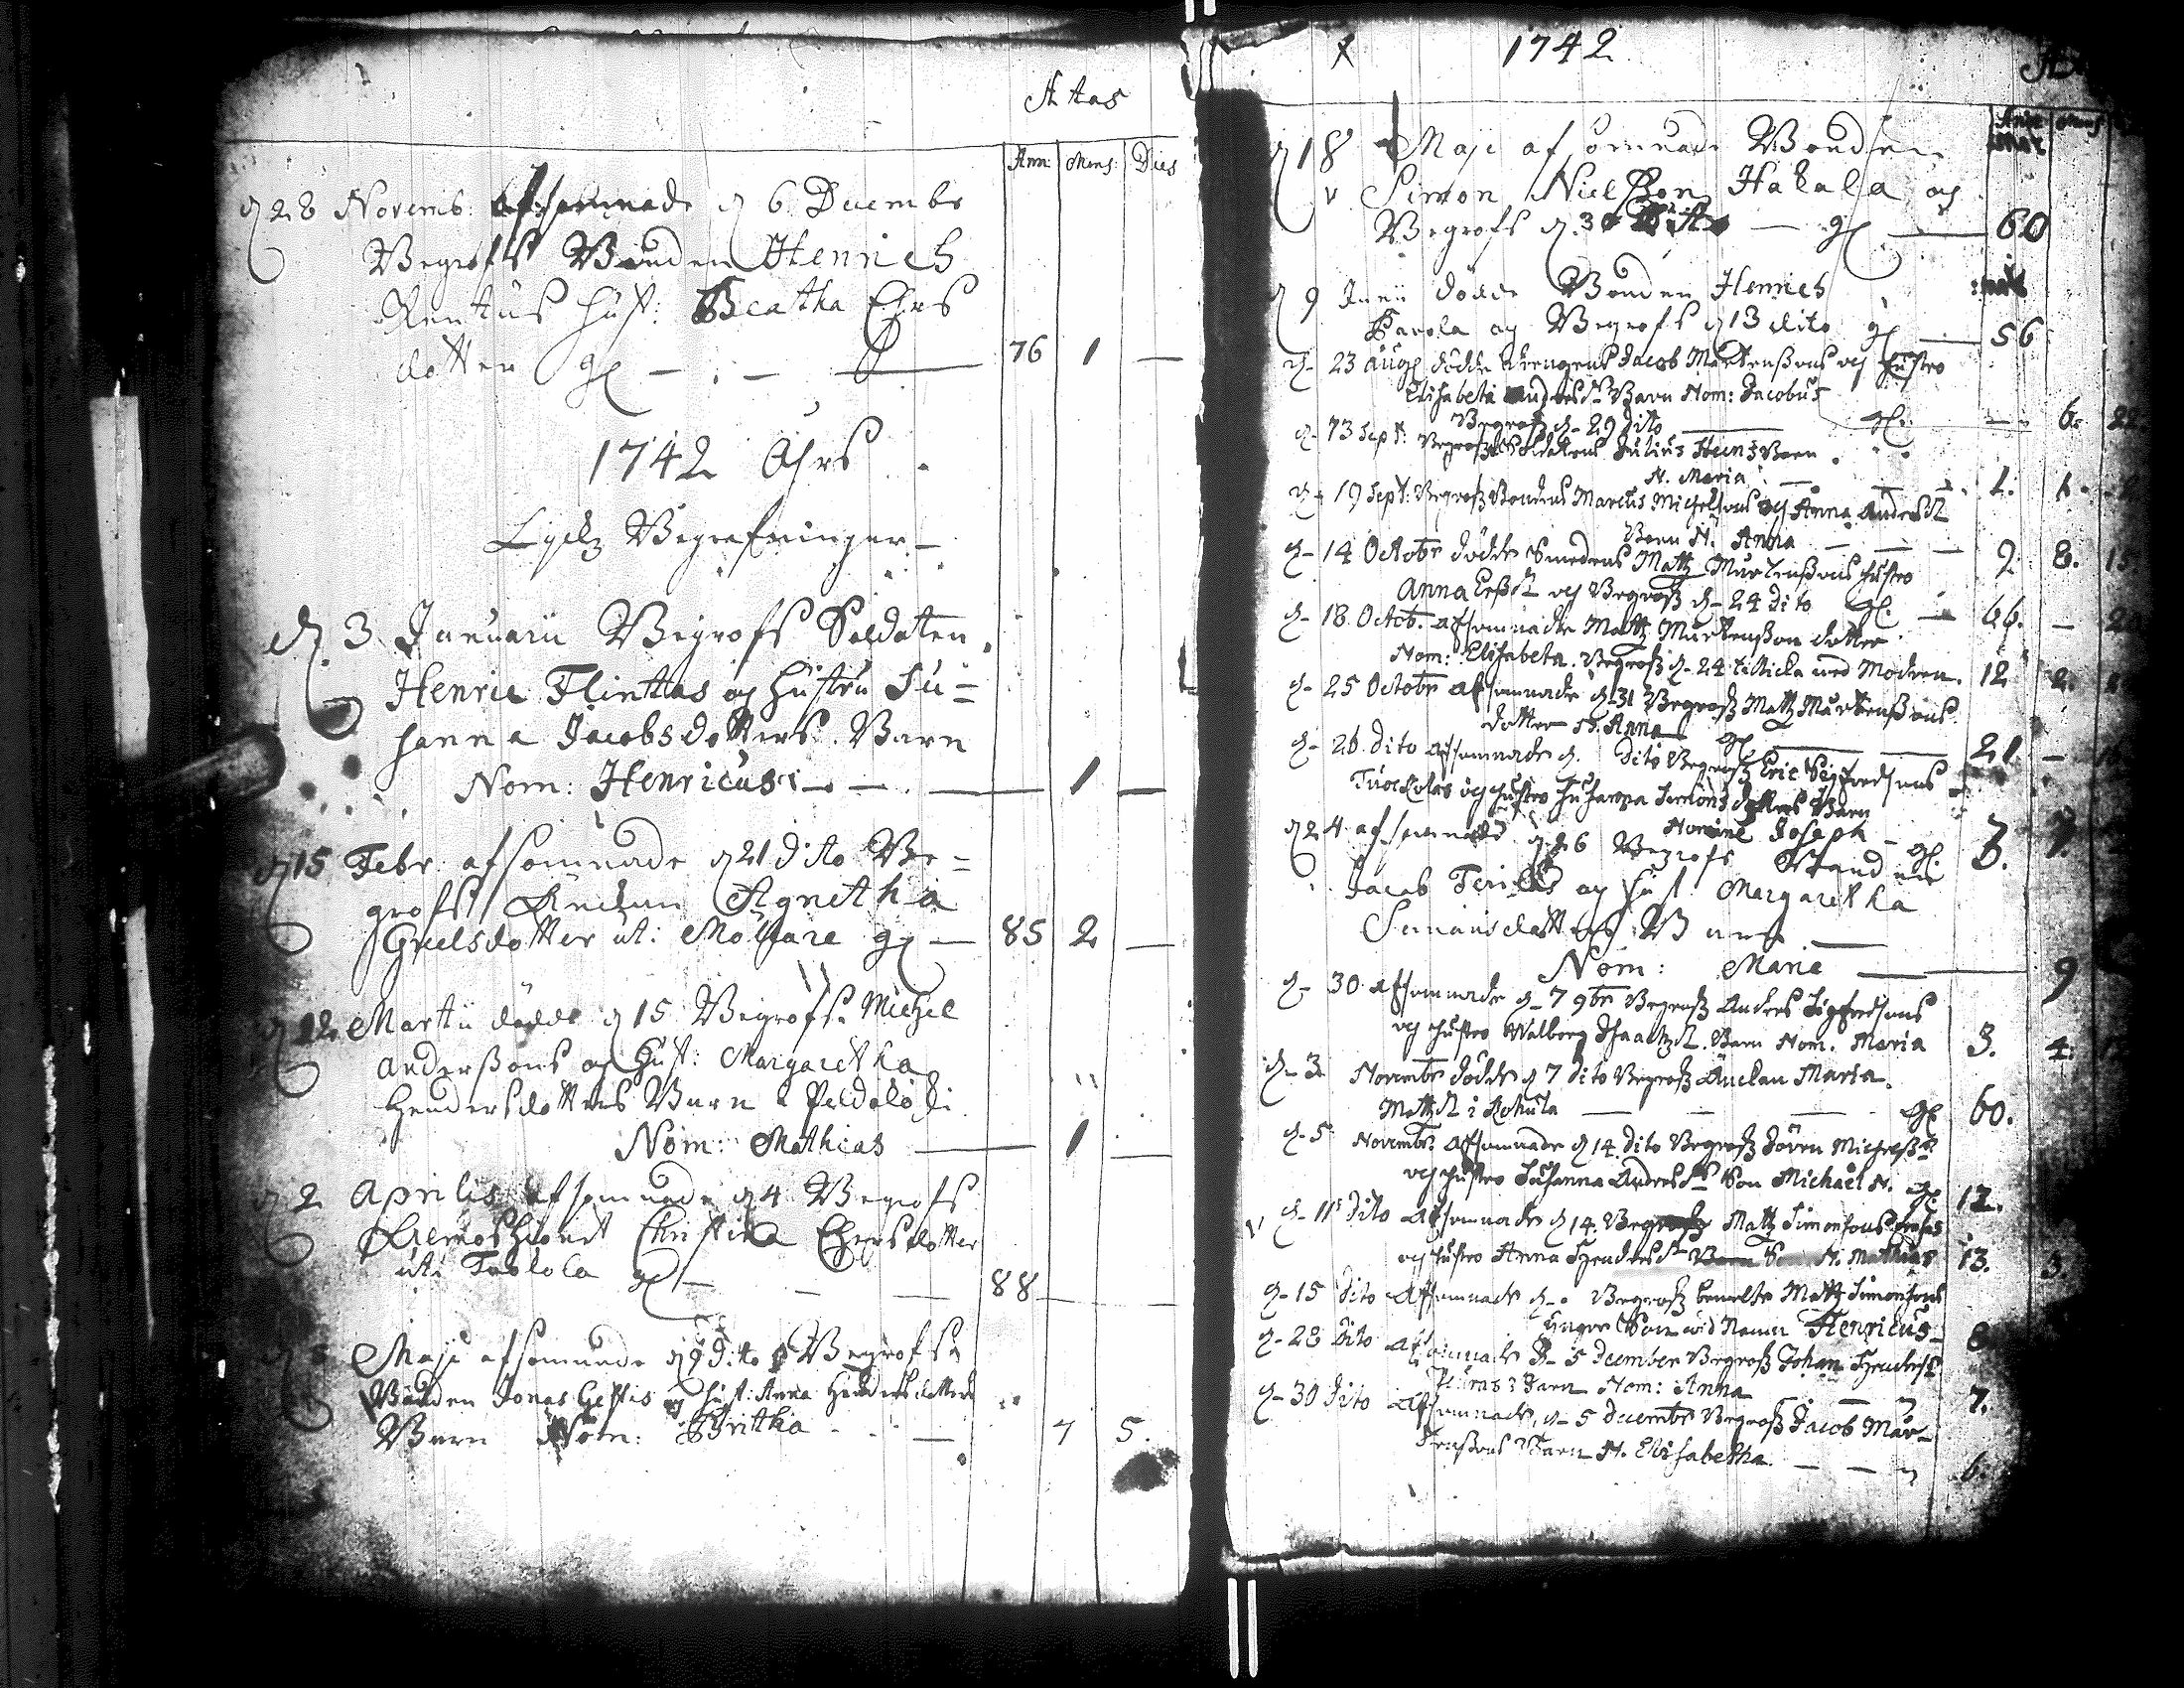 Ætas
Ann: Mens: Dies
d 28 Novemb: afsomnade d 6 Decembr
Begrofs Bonden Henrich
hust: Beatha Ehrs
dotter gl — . — — 76 1 —
1742 Åhrs
Lijks Begrafningar —
d. 3 Januarii Begrofs Soldaten
Henric Flinttas og hustru Su=
sanna Jacobsdotters Barn
Nom: Henricus — — — 1 —
d 15 Febr: afsomnade d 21 dito Be=
grofs Änckan Agnetha
Grelsdotter ut: gl — 85 2 —
d 12 Martii dödde d 15 Begrofs Michel
Anderßons og Hust: Margaretha
Hendersdotters Barn
Nom: Mathias — 1 —
d 2 Aprilis afsomnade d 4 Begrofs
Christina Ehrsdotter
uti gl — — — 88 —
Maji afsomnade d 9 dito Begrofs
Bonden Jonas og hust: Anna Hendersdotters
Barn Nom: Britha — 7 5.
1742
Mens
d 18 Maji afsomnade Bonden
v Simon Nielßon Hakala og
Begrofs d. 30 — gl — 60
d 9 Junii dödde Bonden Henrich
og Begrofs d 13 dito gl — 56
d. 23 Aug dödde drengens Jacob Mårtenßons och hustro
Elisabeta Andersdr Barn Nom: Jacobus
Begroß d. 29 dito — gl. — 6. 22
d. 13 Sept: Begroß Soldatens Julius Barn
N. Maria — 1. 1.
d. 19 Sept: Begroß Bondens Marcus Michelsons och Anna Andersdr
Barn N. Anna — — 9. 8. 15
d. 14 Octobr dödde Smedens Mattz Mårtenßons hustro
Anna och Begroß d. 24 dito gl. — 66. —
d. 18. Octob. afsomnade Mattz Mårtenßon dotter
Nom: Elisabeta. Begroß d. 24 med Modren. 12 2.
d. 25 Octobr afsomnade d 31 Begroß Mattz Mårtenßons
dotter N. Anna gl — — 21. —
d. 26. dito afsomnade d. dito Begroß Eric Sigfredsons
och hustro Susanna Simonsdotters Barn
Nomine Joseph — gl. 3.
d 24 afsomnade d. 26 Begrofs
Jacob og hust Margaretha
Simonsdotters Barn —
Nom: Maria — 9
d. 30. afsomnade d. 7 9br Begroß Andres Sigfredsons
och hustro Walborg Barn Nom. Maria 3. 4.
d. 3 Novembr dödde d 7 dito Begroß Änckan Maria
Mattzdr i — — — gl 60.
d. 5 Novembr. afsomnade d 14 dito Begroß Sören
och hustro Susanna Andersdr Son Michael N. gl. 12.
v d. 11 dito afsomnade d 14. Begroß Mattz Simonsons
och hustro Anna Hendersdr Son N. Mathias 13. 3.
d. 15 dito afsomnade d. . Begroß bemelte Mattz Simonsons
yngre Son wid Namn Henricus 8
d. 28 dito afsomnade d. 5 December Begroß Johan
Barn Nom: Anna — — 7.
d. 30 dito afsomnade, d. 5 Decembr Begroß Jacob Mår-
tenßons Barn N. Elisabetha. — — 6.